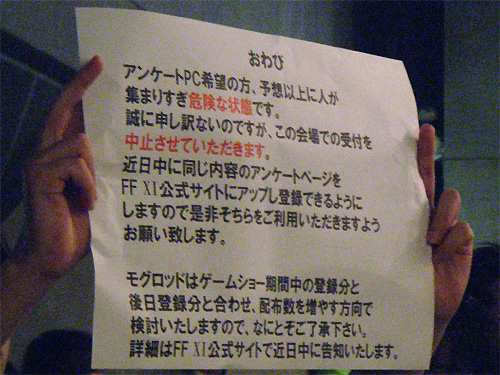 おわび
アンケートPC希望の方、予想以上に人が
集まりすぎ危険な状態です。
誠に申し訳ないのですが、この会場での受付を
中止させていただきます。
近日中に同じ内容のアンケートページを
FF XI公式サイトにアップし登録できるように
しますので是非そちらをご利用いただきますよう
お願い致します。
モグロッドはゲームショー期間中の登録分と
後日登録分と合わせ、配布数を増やす方向で
検討いたしますので、なにとぞご了承下さい。
詳細はFF XI公式サイトで近日中に告知いたします。